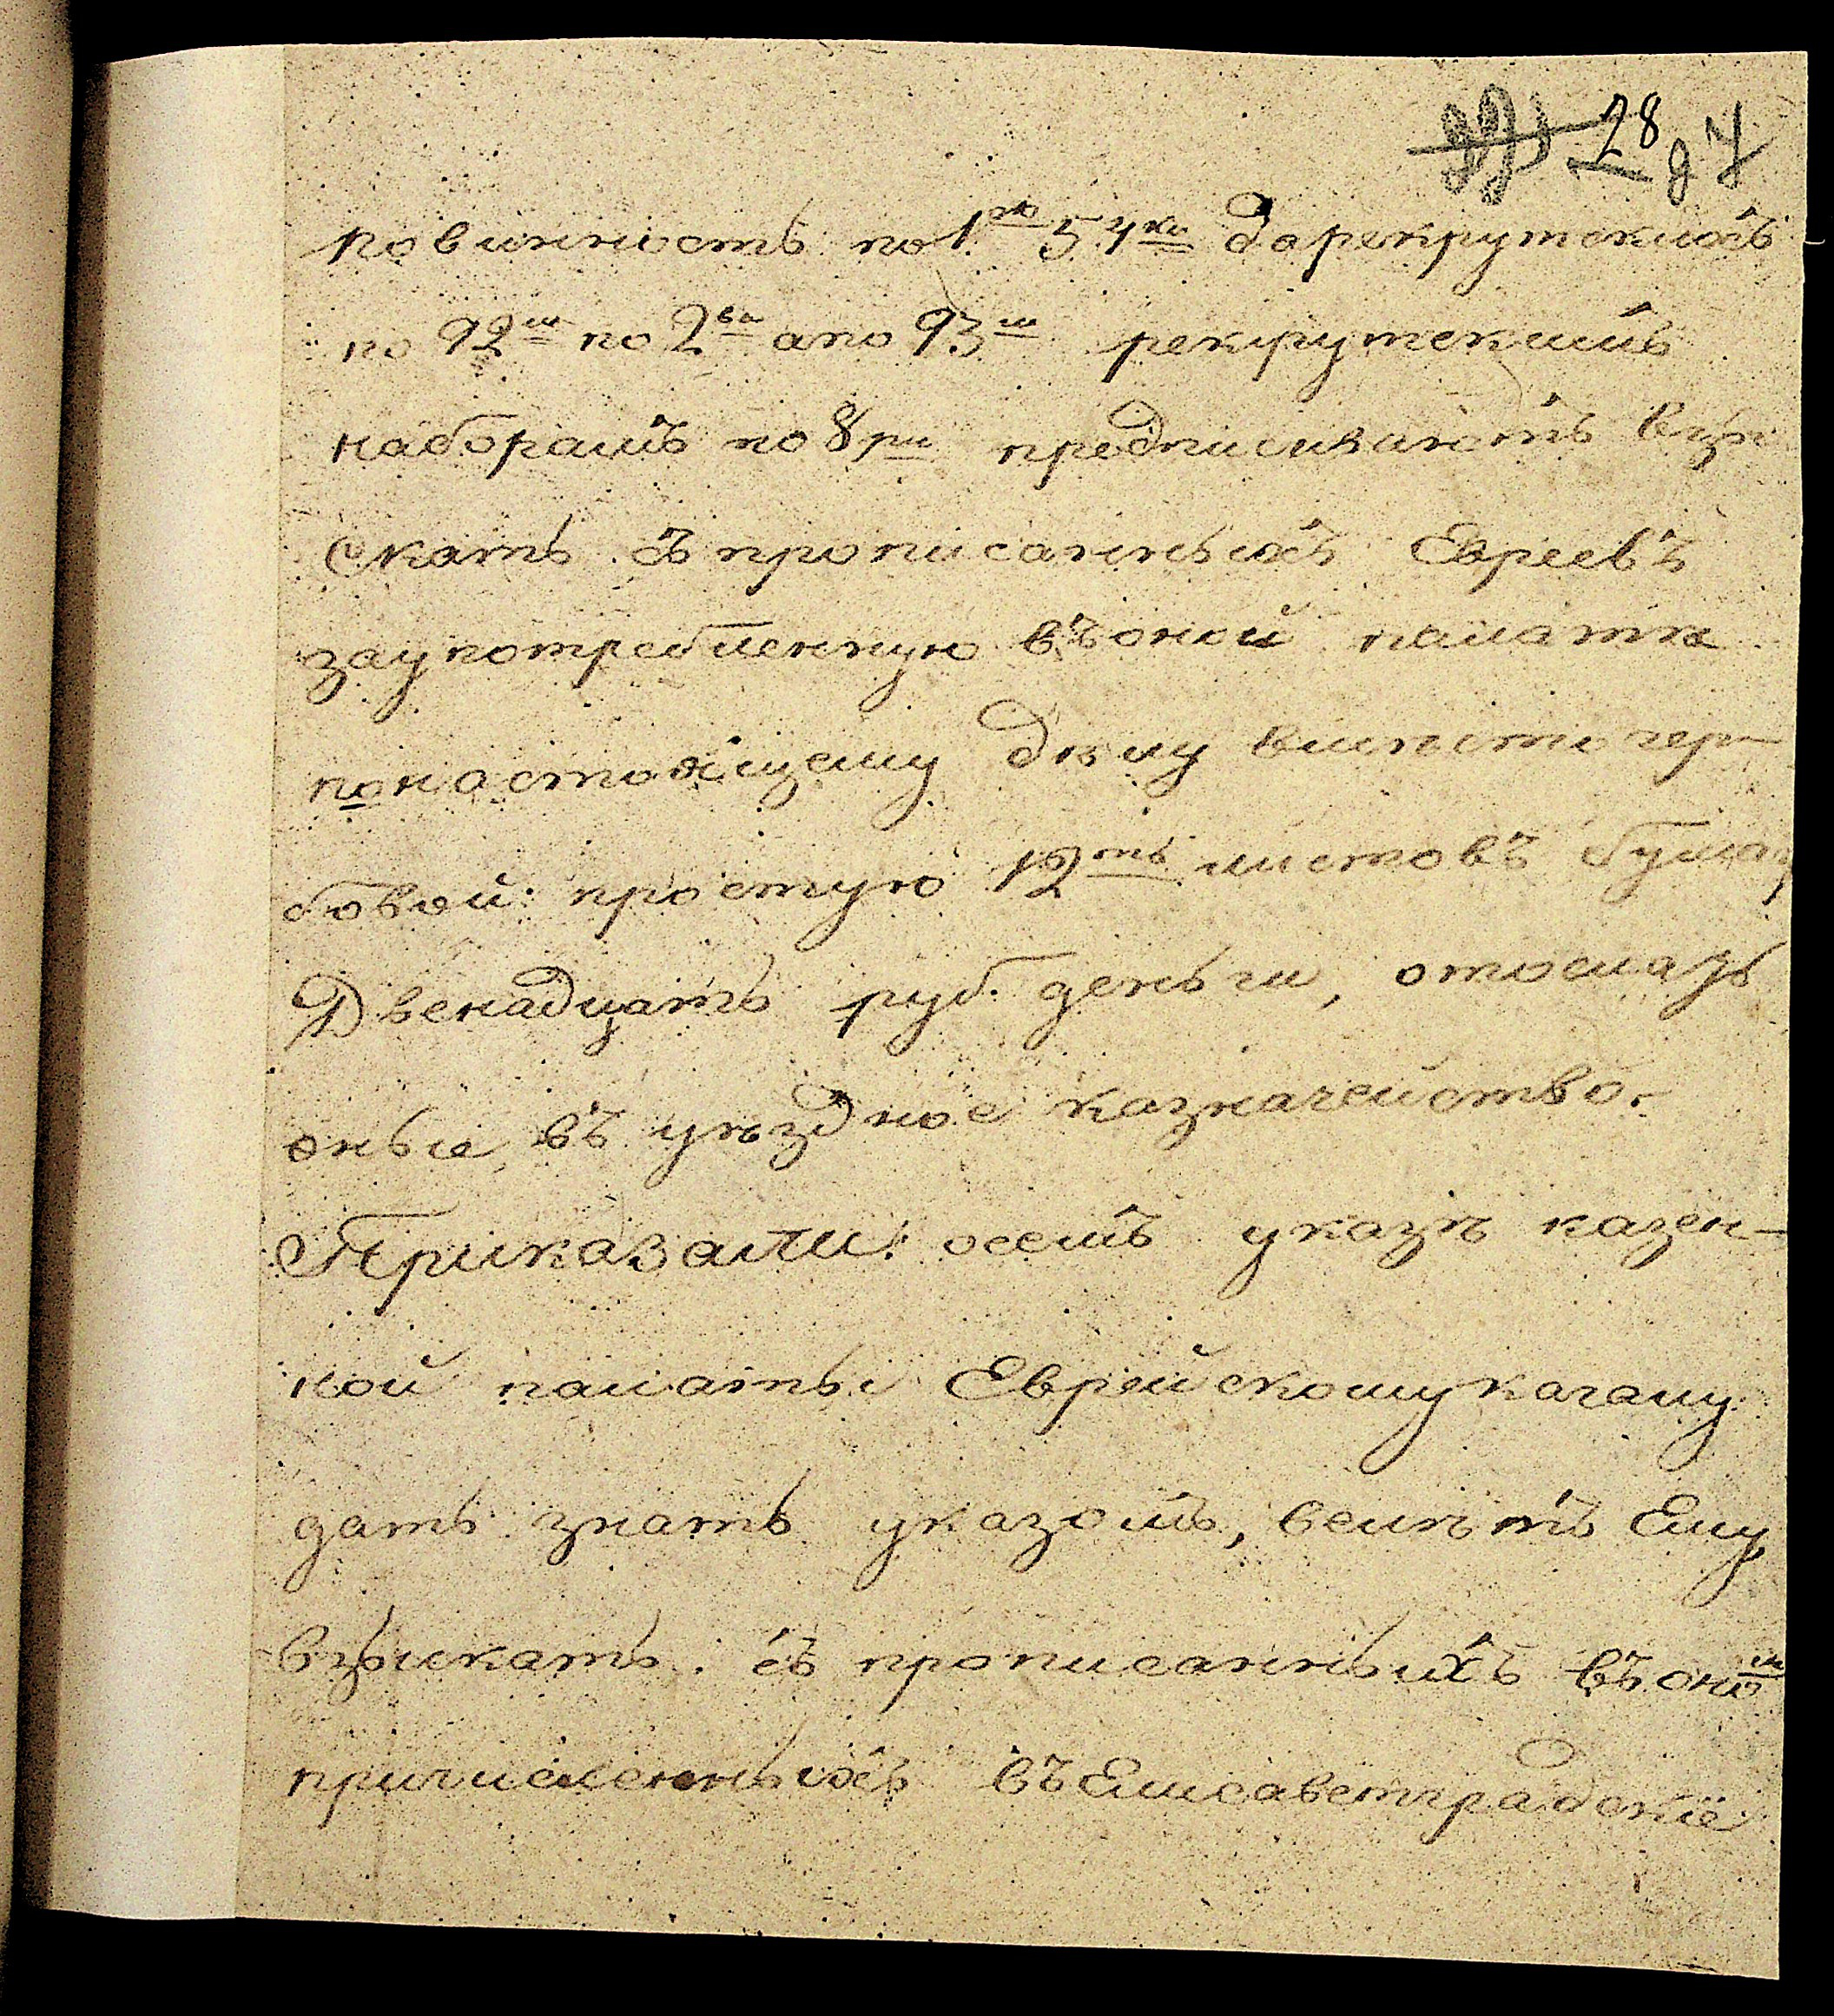 28
повинность по 1 ру 57 ки да рекрутскимъ
по 92му по 2ва а по 93му рекрутскимъ
наборамъ по 8 ру предписываютъ взы
скать съ прописанныхъ Евреевъ
заупотребленную въ оной палатѣ
понастоящему дѣлу вмѣсто гер-
бовой: простую 12ть листовъ бумагу
Двенадцать руб. деньги, отослать
оные въ уѣздное казначейство.
Приказали: осемъ указѣ казен-
ной палаты Еврейскому кагалу
дать знать указомъ, велѣть Ему
взыскать съ прописанныхъ въ оно
причисленныхъ въ Елисаветградскїе